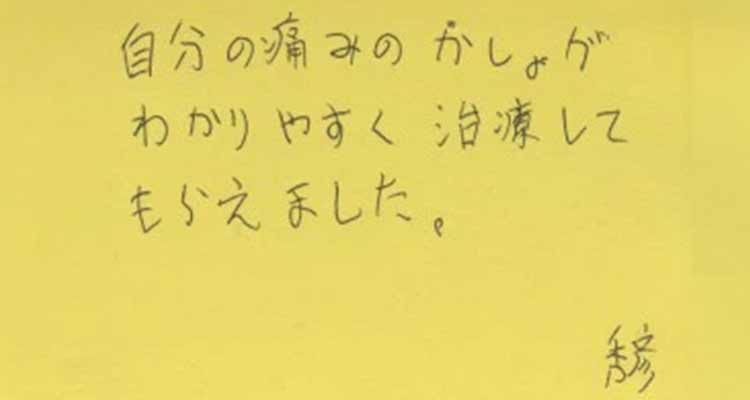 自分の痛みのかしょが
わかりやすく治療して
もらえました。